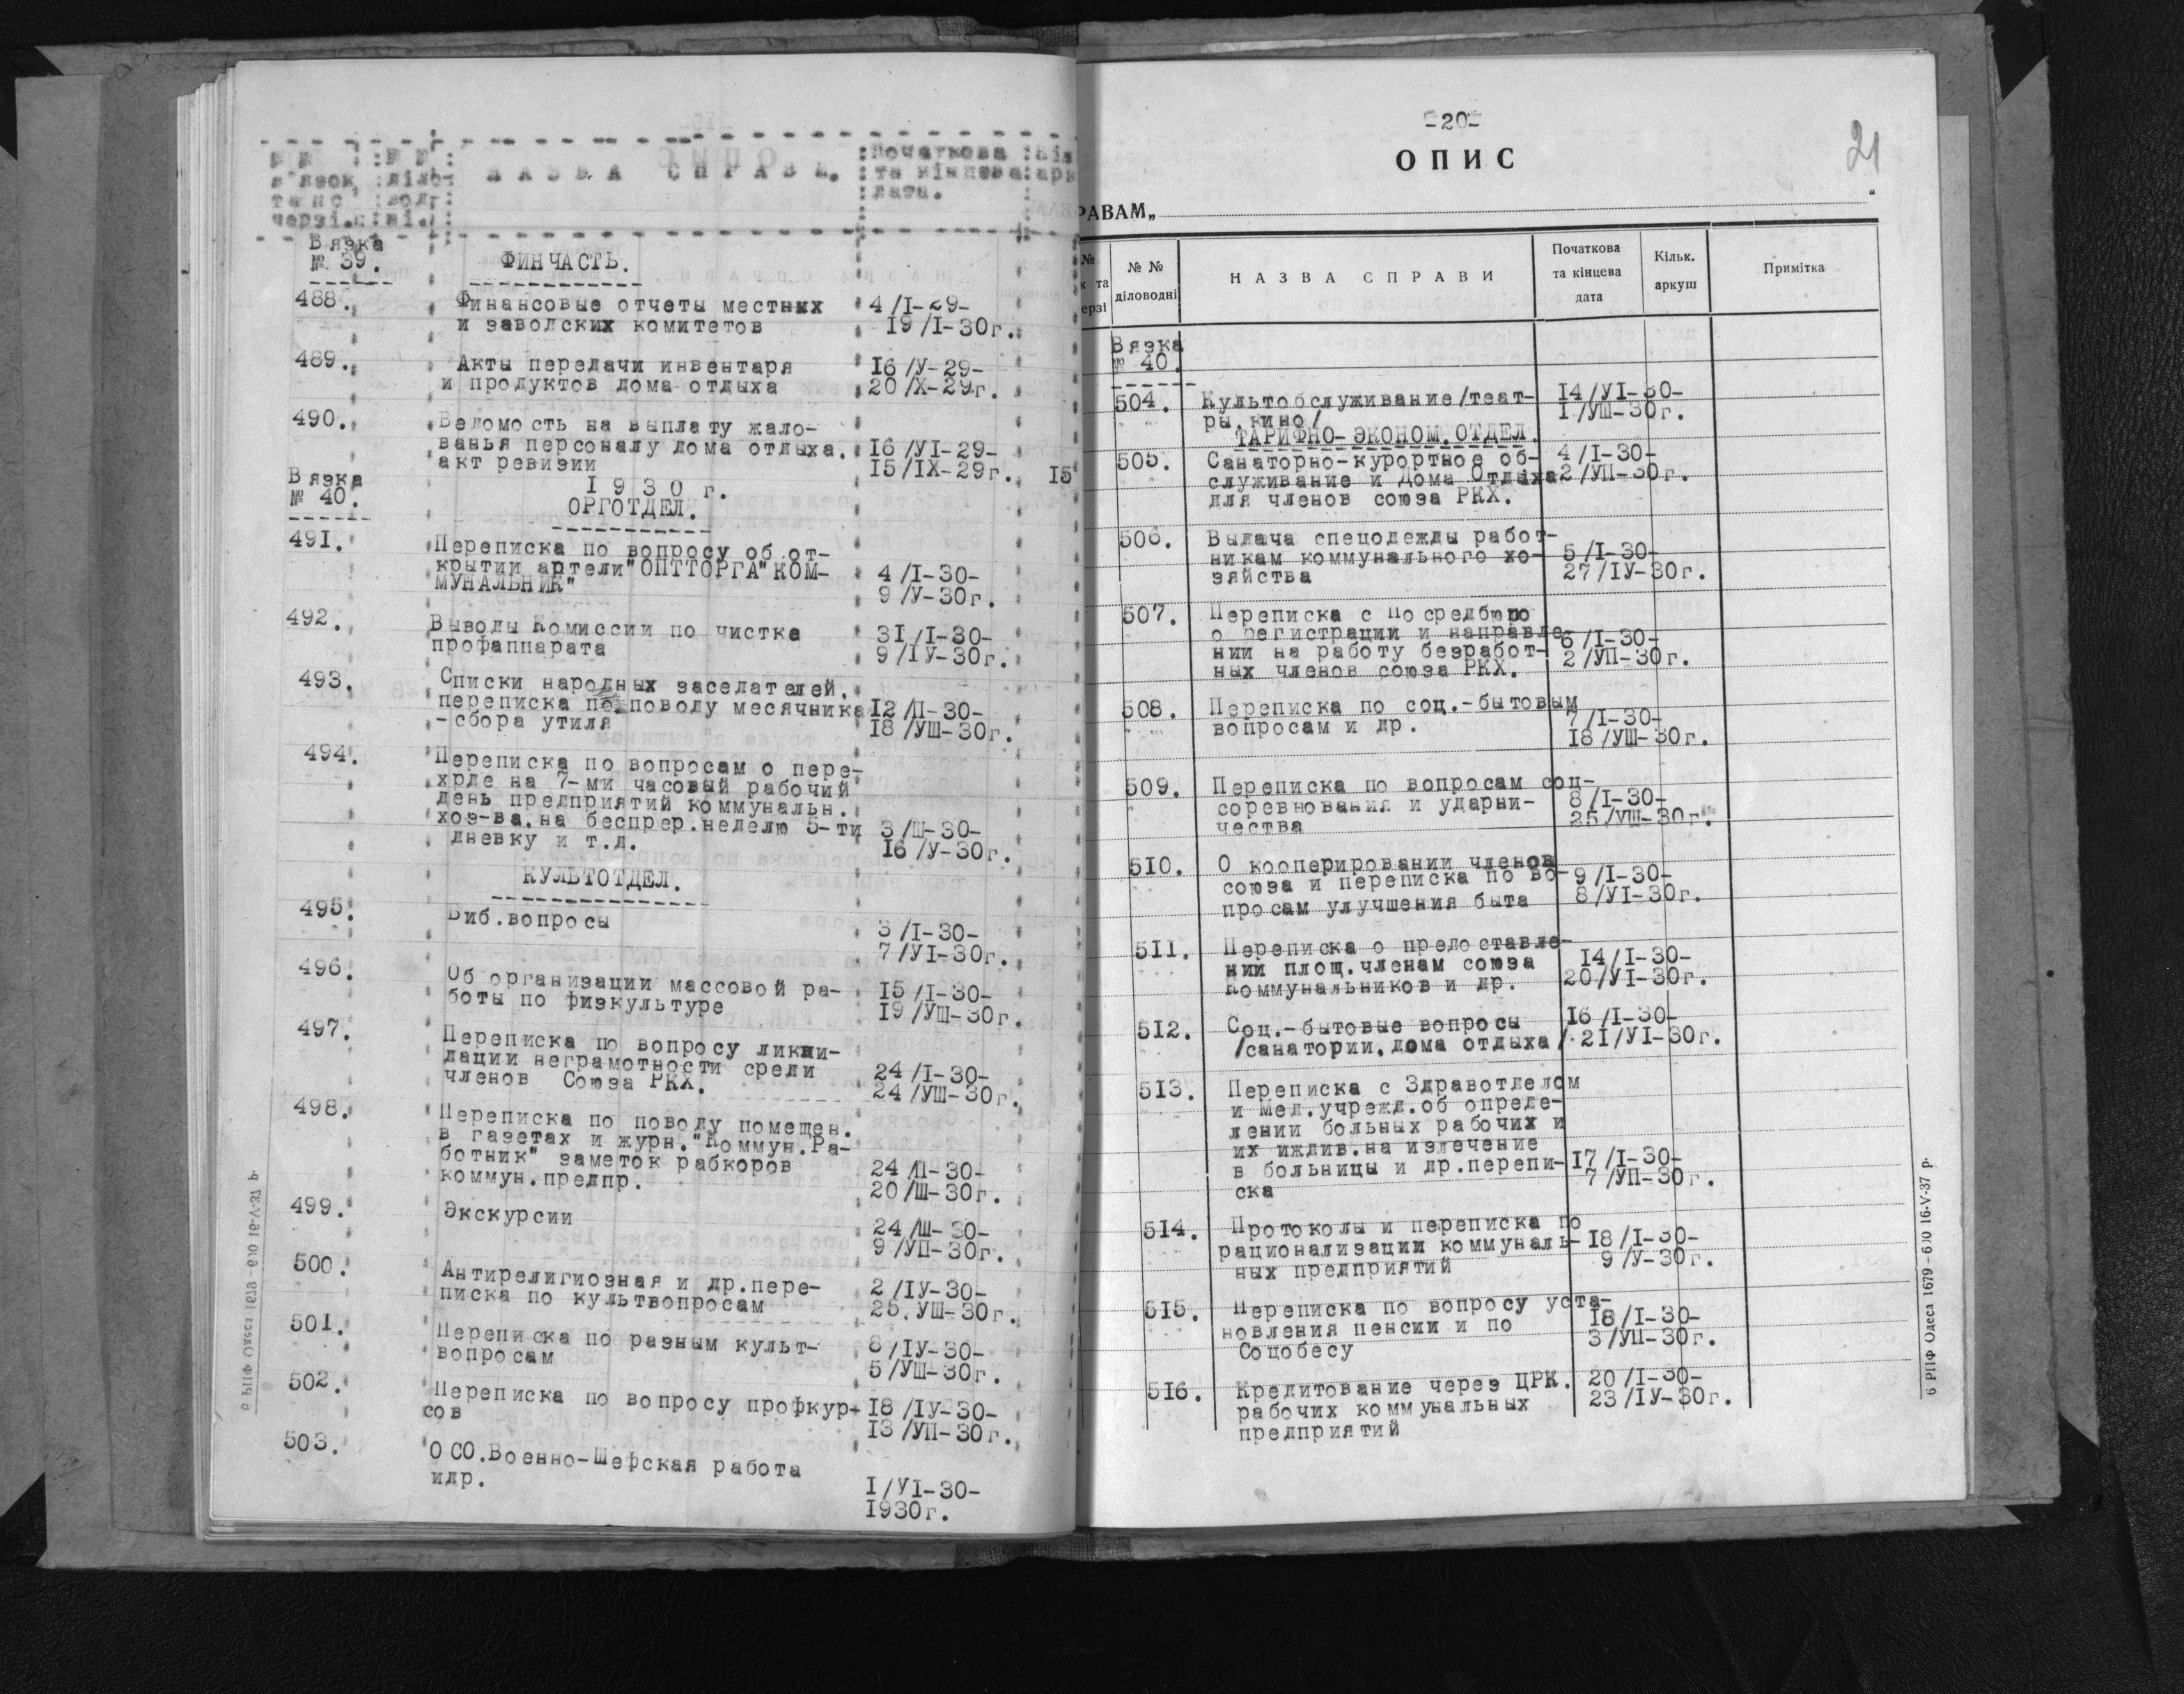 № №
в'язок
та по
черзі.
№ №
діло-
вод-
ні.
НАЗВА СПРАВИ.
Початкова
та кінцева
дата.
Вязка
№ 39.
ФИНЧАСТЬ.
488. Финансовые отчеты местных 4/I-29-
и заводских комитетов 19/I-30г.
489. Акты передачи инвентаря 16/У-29-
и продуктов дома отдыха 20/Х-29г.
490. Ведомость на выплату жало-
ванья персоналу дома отдыха, 16/УI-29-
акт ревизии 15/IX-29г. 15
Вязка
№ 40.
1930 г.
ОРГОТДЕЛ.
491. Переписка по вопросу об от-
крытии артели "ОПТТОРГА" КОМ- 4/I-30-
МУНАЛЬНИК" 9/У-30г.
492. Выводы Комиссии по чистке 31/I-30-
профаппарата 9/IУ-30г.
493. Списки народных заседателей,
переписка по поводу месячника 12/П-30-
-сбора утиля 18/УШ-30г.
494. Переписка по вопросам о пере-
хрде на 7-ми часовый рабочий
день предприятий коммунальн.
хоз-ва, на беспрер.неделю 5-ти 3/Ш-30-
дневку и т.д. 16/У-30г.
КУЛЬТОТДЕЛ.
495. Биб.вопросы 3/I-30-
7/УI-30г.
496. Об организации массовой ра- 15/I-30-
боты по физкультуре 19/УШ-30г.
497. Переписка по вопросу ликви-
дации неграмотности среди 24/I-30-
членов Союза РКХ. 24/УШ-30г.
498. Переписка по поводу помещен.
в газетах и журн."Коммун.Ра-
ботник" заметок рабкоров 24/П-30-
коммун.предпр. 20/Ш-30г.
499. Экскурсии 24/Ш-30-
9/УП-30г.
500. Антирелигиозная и др.пере- 2/IУ-30-
писка по культвопросам 25.УШ-30г.
501. Переписка по разным культ- 8/IУ-30-
вопросам 5/УШ-30г.
502. Переписка по вопросу профкур- 18/IУ-30-
сов 13/УП-30г.
503. ОСО.Военно-Шефская работа
идр. 1/УI-30-
1930г.
-20-
21
ОПИС
РАВАМ„ “
№
к та
ерзі
№ №
діловодні
НАЗВА СПРАВИ
Початкова
та кінцева
дата
Кільк.
аркуш
Примітка
Вязка
№ 40.
504. Культобслуживание/теат- 14/УI-30-
ры,кино/ 1/УШ-30г.
ТАРИФНО-ЭКОНОМ.ОТДЕЛ.
505. Санаторно-курортное об- 4/I-30-
служивание и Дома Отдыха 2/УП-30г.
для членов союза РКХ.
506. Выдача спецодежды работ-
никам коммунального хо- 5/I-30-
зяйства 27/IУ-30г.
507. Переписка с Посредбюро
о регистрации и направле- 6/I-30-
нии на работу безработ- 2/УП-30г.
ных членов союза РКХ.
508. Переписка по соц.-бытовым 7/I-30-
вопросам и др. 18/УШ-30г.
509. Переписка по вопросам соц-
соревнования и ударни- 8/I-30-
чества 25/УШ-30г.
510. О кооперировании членов
союза и переписка по во- 9/I-30-
просам улучшения быта 8/УI-30г.
511. Переписка о предоставле-
нии площ.членам союза 14/I-30-
Коммунальников и др. 20/УI-30г.
512. Соц.-бытовые вопросы 16/I-30-
/санатории,дома отдыха/ 21/УI-30г.
513. Переписка с Здравотделом
и Мед.учрежд.об опреде-
лении больных рабочих и
их иждив.на излечение
в больницы и др.перепи- 17/I-30-
ска 7/УП-30г.
514. Протоколы и переписка по
рационализации коммуналь- 18/I-30-
ных предприятий 9/У-30г.
515. Переписка по вопросу уста- 18/I-30-
новления пенсии и по 3/УП-30г.
Соцобесу
516. Кредитование через ЦРК. 20/I-30-
рабочих коммунальных 23/IУ-30г.
предприятий
6 РПФ Одеса 1679 – 600 16-V-37 р.